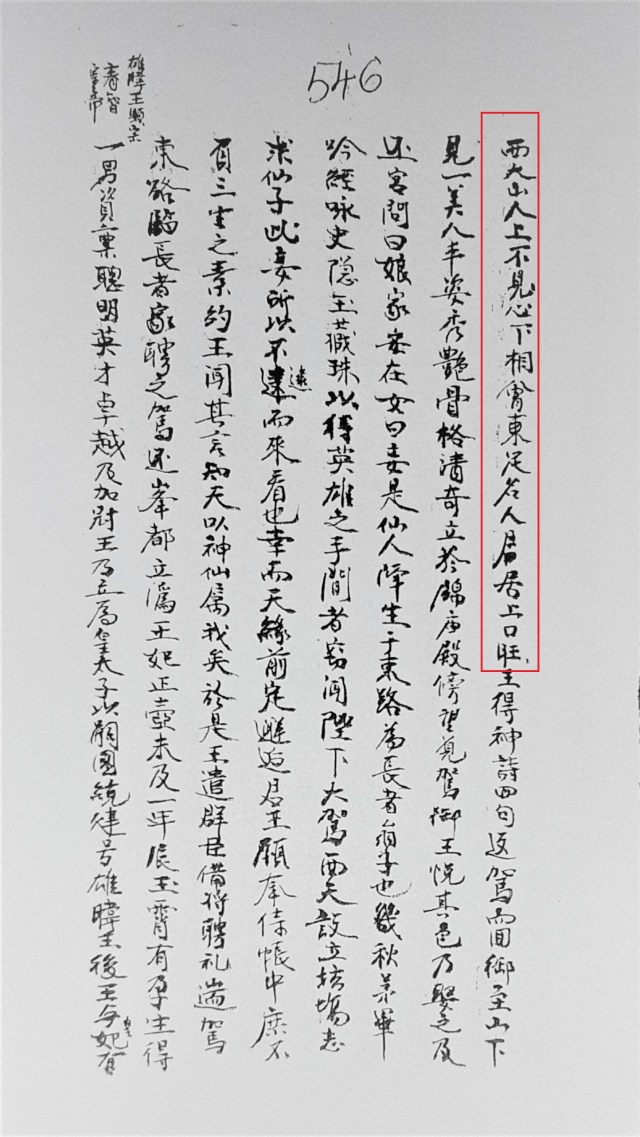 546
西天山人上不見心下相當東足名人居上口旺王得神詩四句返駕而回御至山下
見一美人丰姿秀艷骨格清奇立於錦席殿傍望見駕御王悅其色乃娶之及
还宮問曰娘家安在女曰妾是仙人降生于東路為長者翁子也幾秋業畢
吟經咏史隐玉藏珠以待英雄之手間者竊聞陛下大駕西天設立技場志
求仙子此妾所以不遠而來看也幸而天緣前定邂逅君王願奉侍帳中庶不
負三生之素約王聞其言知天以神仙屬我矣於是王遣群臣備將聘礼遄駕
東路臨長者家聘之駕还峯都立為王妃正壼未及一年辰玉霄有孕生得
雄暐王顯宗
睿智
皇帝
一男資稟聰明英才卓越及加冠王乃立為皇太子以嗣國統建号雄暐王後王与妃有